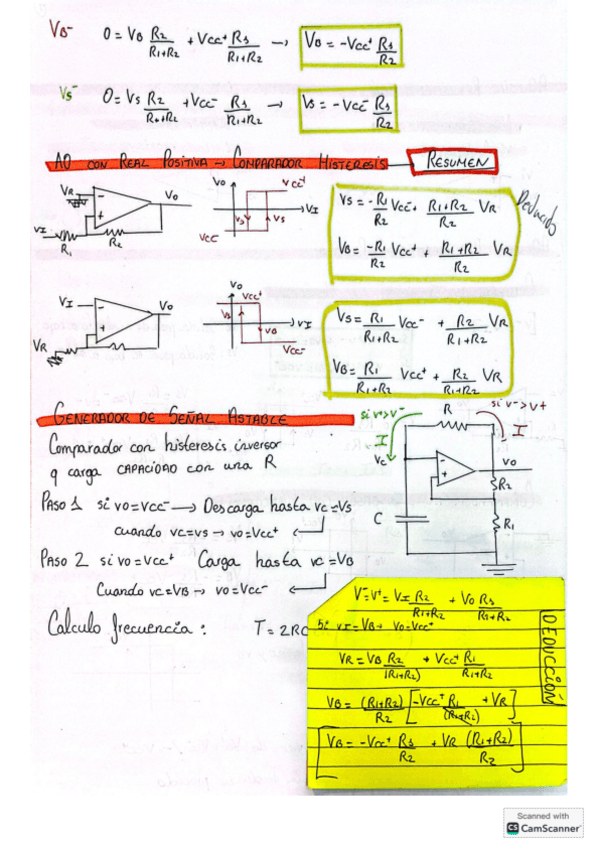 VB⁻ 0 = VB R2/(R1+R2) + Vcc⁺ R1/(R1+R2) → VB = -Vcc⁺ R1/R2
Vs⁻ 0 = Vs R2/(R1+R2) + Vcc⁻ R1/(R1+R2) → Vs = -Vcc⁻ R1/R2
AO CON REAL POSITIVA → COMPARADOR HISTERESIS RESUMEN
VR
VI
R1
R2
Vo
-
+
Vo
Vcc⁺
VB
VS
VI
Vcc⁻
VS = -R1/R2 Vcc⁻ + (R1+R2)/R2 VR
VB = -R1/R2 Vcc⁺ + (R1+R2)/R2 VR
Deducido
VI
VR
Vo
-
+
Vo
Vcc⁺
VS
VB
VI
Vcc⁻
VS = R1/(R1+R2) Vcc⁻ + R2/(R1+R2) VR
VB = R1/(R1+R2) Vcc⁺ + R2/(R1+R2) VR
GENERADOR DE SEÑAL ASTABLE
Comparador con histeresis inversor
q carga CAPACIDAD con una R
PASO 1 si vo=Vcc⁻ → Descarga hasta vc=Vs
cuando vc=vs → vo=Vcc⁺
PASO 2 si vo=Vcc⁺ Carga hasta vc=VB
Cuando vc=VB → vo=Vcc⁻
Calculo frecuencia: T = 2RC
si v⁺>v⁻
R
si v⁻>v⁺
I
I
Vc
-
+
vo
R2
R1
C
V⁻=V⁺ = VI R2/(R1+R2) + Vo R1/(R1+R2)
Si vI=VB → Vo=Vcc⁺
VR = VB R2/(R1+R2) + Vcc⁺ R1/(R1+R2)
VB = (R1+R2)/R2 [-Vcc⁺ R1/(R1+R2) + VR]
VB = -Vcc⁺ R1/R2 + VR (R1+R2)/R2
DEDUCCIÓN
Scanned with
CS CamScanner